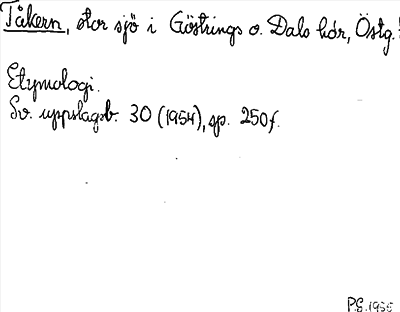 Tåkern, stor sjö i Göstrings o. Dals hdr, Östg.
Etymologi.
Sv. uppslagsb. 30 (1954), sp. 250f.
P.G. 1955